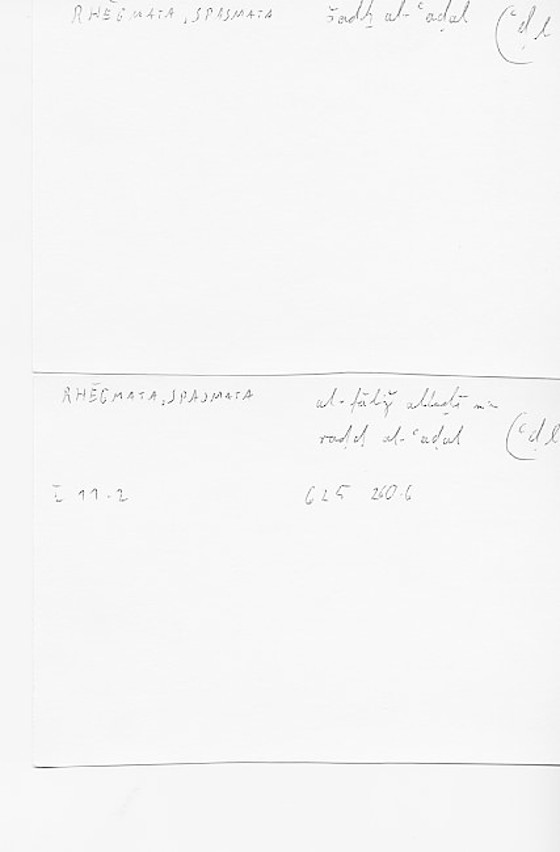 RHĒGMATA, SPASMATA šadḫ al-ʿaḍal (ʿḍl
RHĒGMATA, SPASMATA al-fāliǧ allaḏī
raḍḍ al-ʿaḍal (ʿḍl
I 11.2 625 260.6